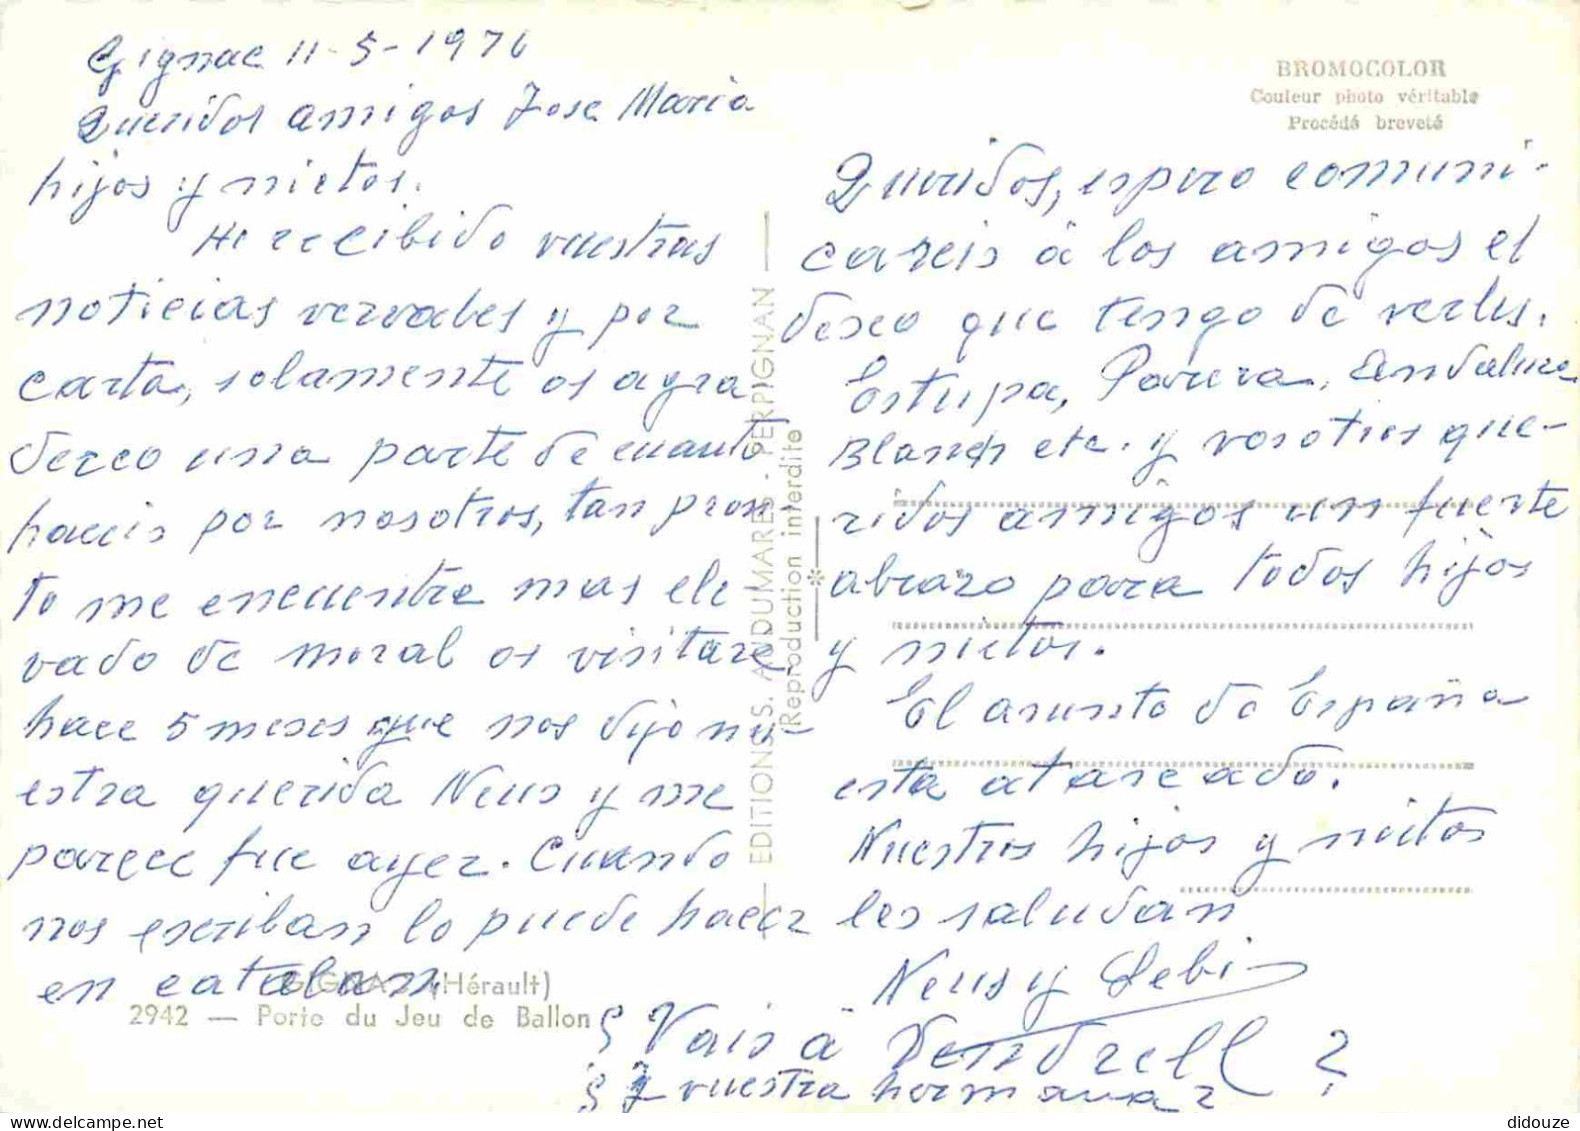 Gignac 11-5-1976
Queridos amigos Jose Maria
hijos y nietos.
He recibido vuestras
noticias vervales y por
carta, solamente os agra
dezco una parte de cuanto
haceis por nosotros, tan pron-
to me encuentre mas ele
vado de moral os visitare
hace 5 meses que nos dijo nu-
estra querida Neus y me
parece fue ayer. Cuando
nos escriban lo puede hacer
en catalan,
GIGNAC (Hérault)
2942 — Porte du Jeu de Ballon
EDITIONS S. AUDUMARES - PERPIGNAN
(Reproduction interdite
BROMOCOLOR
Couleur photo véritable
Procédé breveté
Queridos, espero comuni-
careis à los amigos el
deseo que tengo de verles.
Estupa, Parera, Andaluza
Blanch etc. y vosotros que-
ridos amigos un fuerte
abrazo para todos hijos
y nietos.
El asunto de España
esta atascado.
Nuestros hijos y nietos
les saludan
Neus y
¿ Vais à Vendrell ?
¿ Y vuestra hermana?
didouze